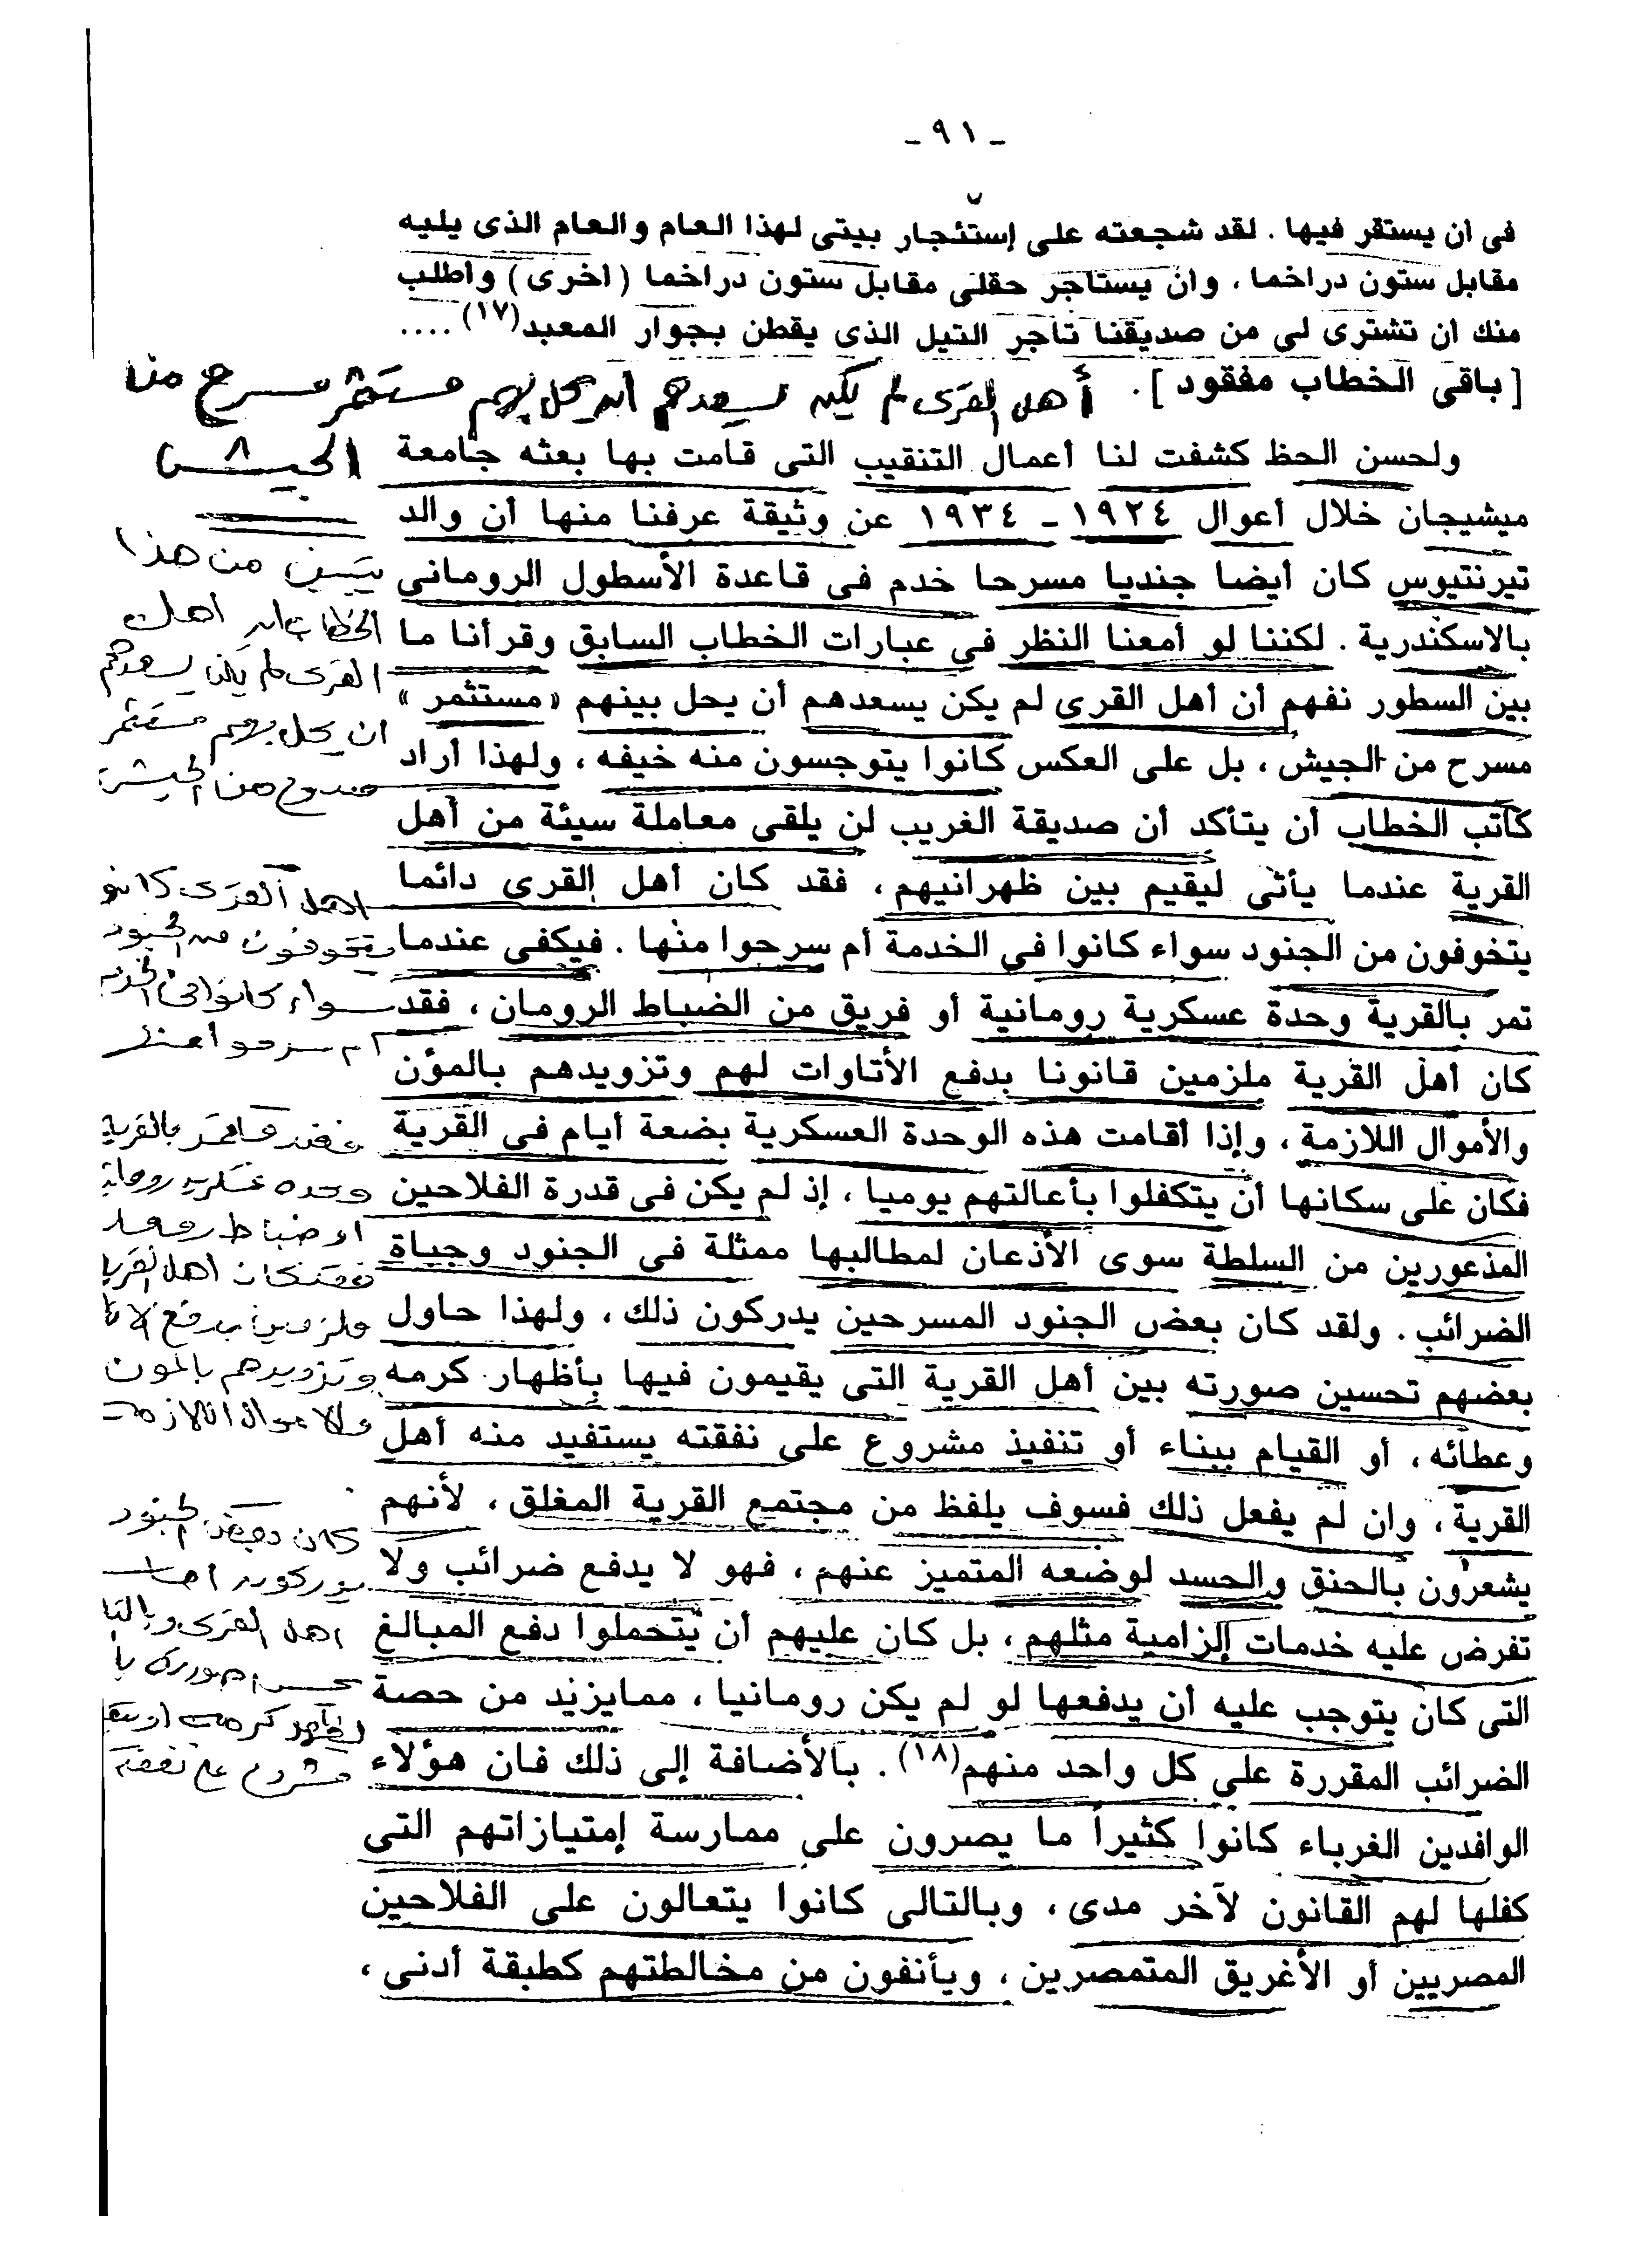 - ٩١ -
فى أن يستقر فيها . لقد شجعته على إستئجار بيتى لهذا العام والعام الذى يليه
مقابل ستون دراخما ، وان يستاجر حقلى مقابل ستون دراخما (اخرى) واطلب
منك ان تشترى لى من صديقنا تاجر التيل الذى يقطن بجوار المعبد (١٧) ....
[باقى الخطاب مفقود] .
أهل القرى لم يكن يسعدهم أن يحل بينهم مستثمر مسرح من
الجيش
ولحسن الحظ كشفت لنا أعمال التنقيب التى قامت بها بعثه جامعة
ميشيجان خلال أعوال ١٩٢٤ - ١٩٣٤ عن وثيقة عرفنا منها أن والد
تيرنتيوس كان أيضا جنديا مسرحا خدم فى قاعدة الأسطول الرومانى
بالاسكندرية . لكننا لو أمعنا النظر في عبارات الخطاب السابق وقرأنا ما
بين السطور نفهم أن أهل القرى لم يكن يسعدهم أن يحل بينهم «مستثمر»
مسرح من الجيش ، بل على العكس كانوا يتوجسون منه خيفه ، ولهذا أراد
كاتب الخطاب أن يتأكد أن صديقة الغريب لن يلقى معاملة سيئة من أهل
القرية عندما يأتى ليقيم بين ظهرانيهم ، فقد كان أهل القرى دائما
يتخوفون من الجنود سواء كانوا في الخدمة أم سرحوا منها . فيكفى عندما
تمر بالقرية وحدة عسكرية رومانية أو فريق من الضباط الرومان ، فقد
كان أهل القرية ملزمين قانونا بدفع الأتاوات لهم وتزويدهم بالمؤن
والأموال اللازمة ، وإذا أقامت هذه الوحدة العسكرية بضعة أيام فى القرية
فكان على سكانها أن يتكفلوا بأعالتهم يوميا ، إذ لم يكن فى قدرة الفلاحين
المذعورين من السلطة سوى الأذعان لمطالبها ممثلة فى الجنود وجباة
الضرائب . ولقد كان بعض الجنود المسرحين يدركون ذلك ، ولهذا حاول
بعضهم تحسين صورته بين أهل القرية التى يقيمون فيها بأظهار كرمه
وعطائه ، أو القيام ببناء أو تنفيذ مشروع على نفقته يستفيد منه أهل
القرية ، وان لم يفعل ذلك فسوف يلفظ من مجتمع القرية المغلق ، لأنهم
يشعرون بالحنق والحسد لوضعه المتميز عنهم ، فهو لا يدفع ضرائب ولا
تفرض عليه خدمات إلزامية مثلهم ، بل كان عليهم أن يتحملوا دفع المبالغ
التى كان يتوجب عليه أن يدفعها لو لم يكن رومانيا ، ممايزيد من حصة
الضرائب المقررة على كل واحد منهم (١٨) . بالأضافة إلى ذلك فان هؤلاء
الوافدين الغرباء كانوا كثيراً ما يصرون على ممارسة إمتيازاتهم التى
كفلها لهم القانون لآخر مدى ، وبالتالى كانوا يتعالون على الفلاحين
المصريين أو الأغريق المتمصرين ، ويأنفون من مخالطتهم كطبقة أدنى ،
من هذا
الخطاب ان اهل
القرى لم يكن يسعدهم
ان يحل بينهم مستثمر
من الجيش
اهل القرى كانو
يتخوفون من الجنود
سواء كانوا فى الخدمه
ام سرحوا منها
بالقريه
وحده عسكريه رومانيه
او ضباط رومان
فقد كان اهل القريه
ملزمين بدفع الاتا
وتزويدهم بالمون
والاموال اللازمه
كان بعض الجنود
اهل القرى وبالتا
مشروع على نفقته